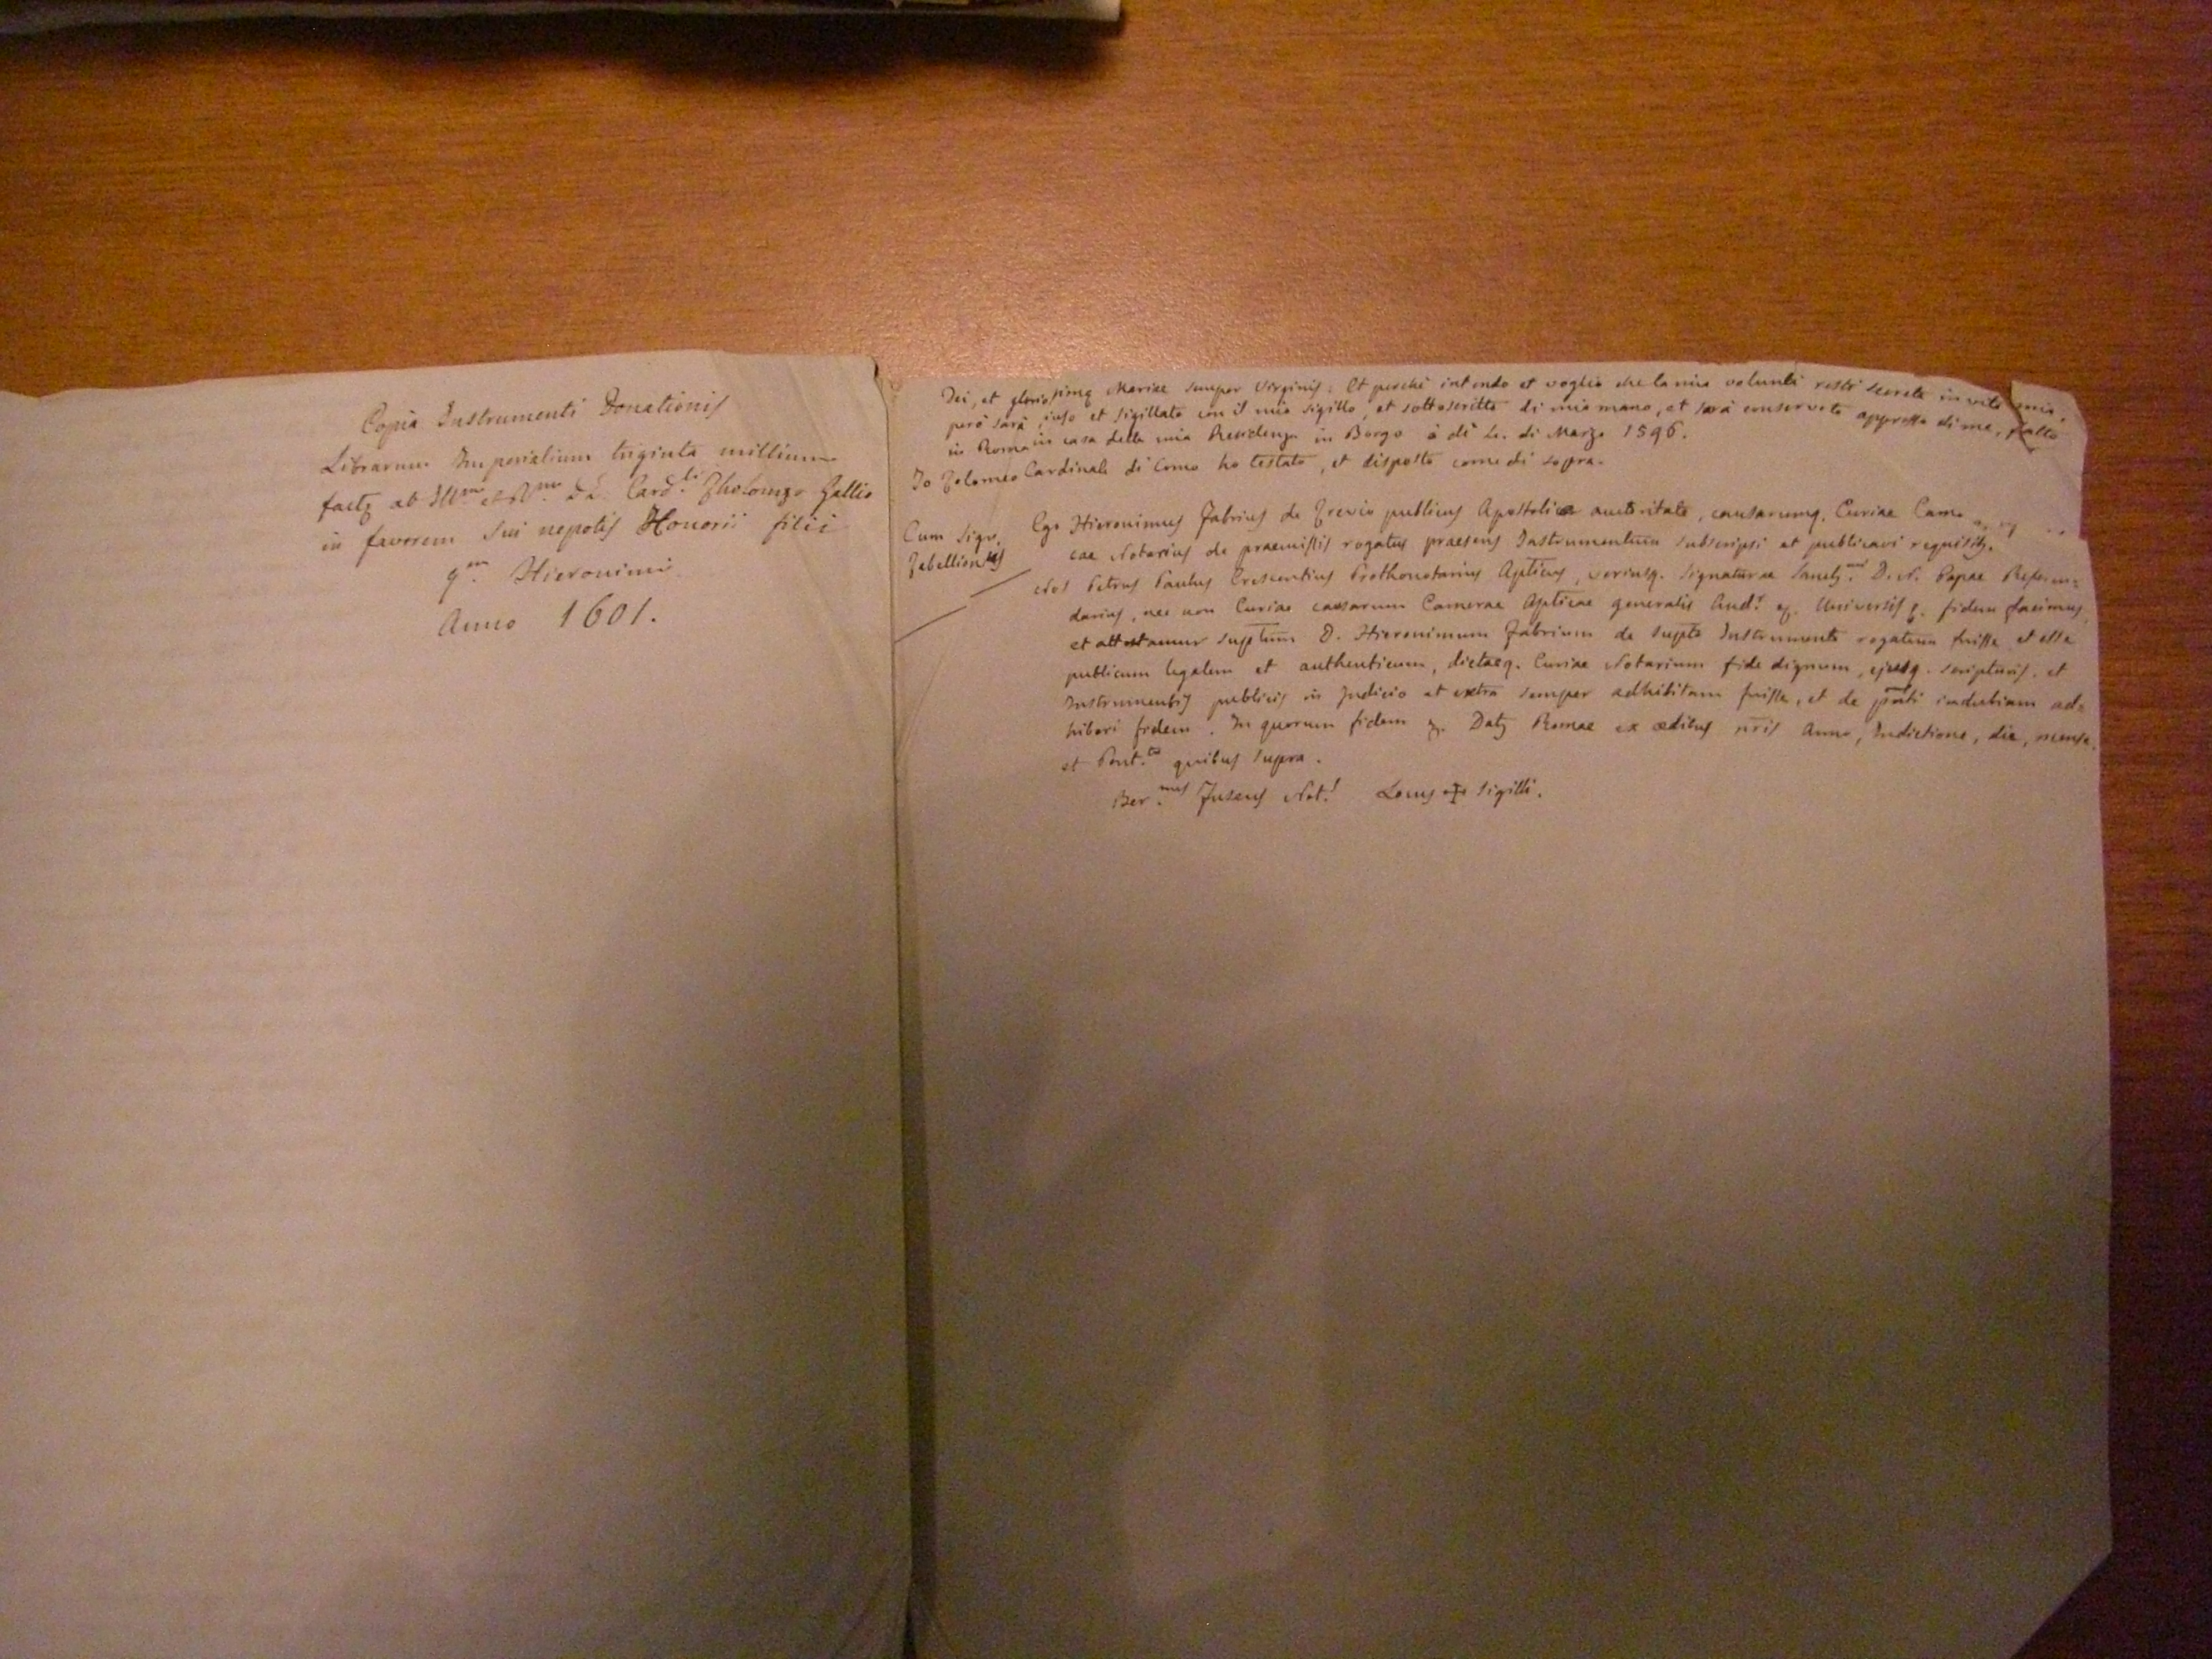 Copia Instrumenti Donationis
Librarum Imperialium triginta millium
factę ab Ill.mo et R.mo D.D. Card.li Ptholomęo Gallio
in favorem sui nepotis Honorii filii
q.m Hieronimi
Anno 1601.
Dei, et gloriosimę Mariae semper Virginis: Et perchè intendo et voglio che la mia voluntà resti secreta in vita mia,
però sarà et sigillato con il mio sigillo, et sottoscritto di mia mano, et sarà conservato appresso di me, fatto
in Roma in casa della mia Residenza in Borgo à dì di Marzo 1596.
Io Tolomeo Cardinale di Como ho testato, et disposto come di sopra.
Cum Sign.
Tabellionus
Ego Hieronimus Fabrius de Trevio publicus Apostolica auctoritate, causarumq. Curiae Came
cae Notarius de praemissis rogatus praesens Instrumentum subscripsi et publicavi requisitq.
Nos Petrus Paulus Crescentius Prothonotarius Apticus, utriusq. signaturae Sanct.mi D. N. Papae Referen=
darius, nec non Curiae causarum Camerae Apticae generalis Aud.r Universis fidem facimus,
et attestamur suptum D. Hieronimum Fabrium de supto Instrumento rogatum fuisse, et esse
publicum legalem et authenticum, dictaeq. Curiae Notarium fide dignum, ejusq. scripturis, et
Instrumentis publicis in Judicio et extra semper adhibitam fuisse, et de pnti indubiam ad=
hiberi fidem. In quorum fidem Dat Romae ex ædibus nris Anno, Indictione, die, mense,
et Pont.tu quibus supra.
Ber.nus Fuscus Not.s Locus ✠ Sigilli.